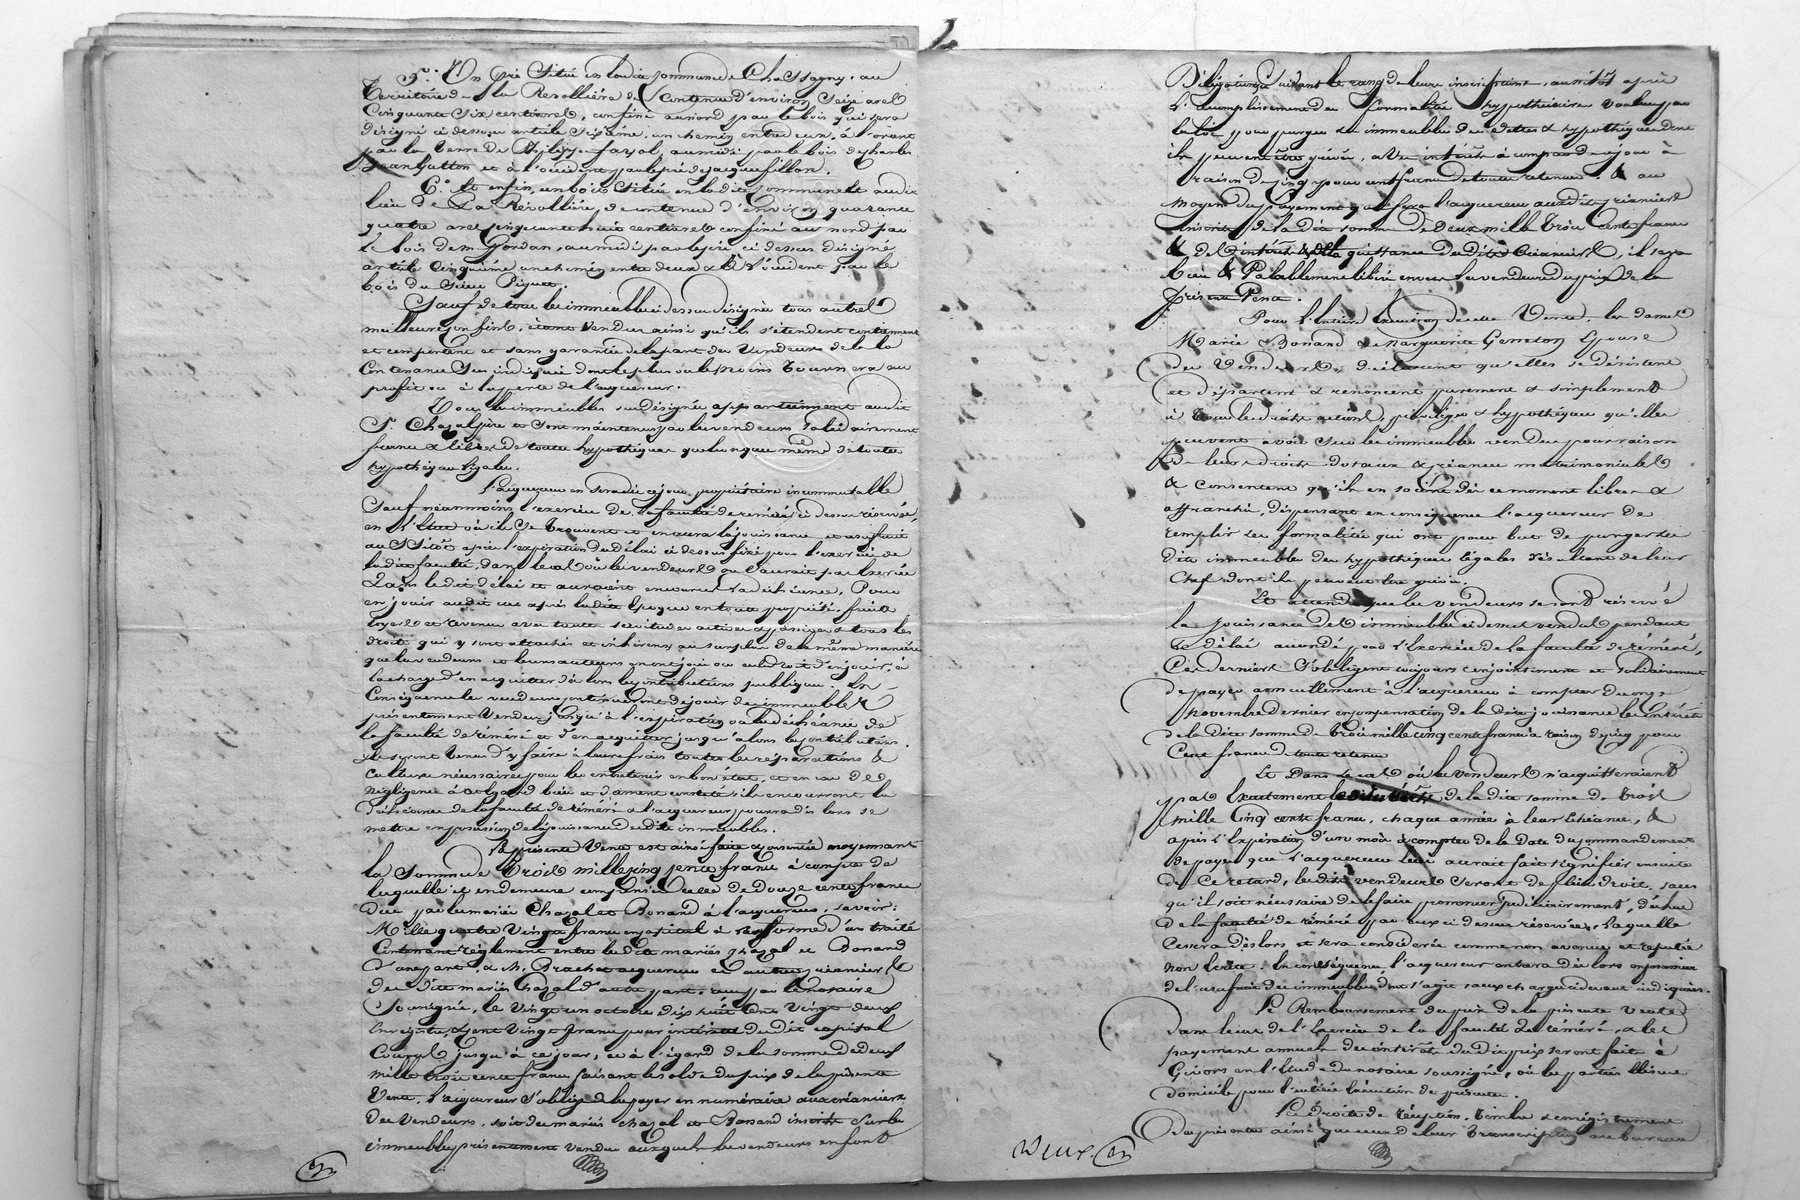 5°. Un pré Situé en ladite commune de Chassagny, au
Territoire de la Revollière de Contenue d'environ Seize ares
Cinquante Six centiares, confiné au nord par le bois qui sera
désigné ci dessous article sixième, un chemin entre deux, à l'orient
par la terre de Philippe fayol, au midi par le bois de charles
et à l'occident par le pré de jacques fillon.
6°. Et enfin, un bois Situé en ladite commune et audit
lieu de La Révollière, de contenue d'environ quarante
quatre ares cinquante huit centiares confiné au nord par
le bois de m. Gordan, au midi par le pré ci dessus désigné
article cinquième un chemin entre deux & à l'occident par le
bois du Sieur Piquet.
Sauf de tous les immeubles ci dessus désignés tous autres
meilleurs confins, étant vendus ainsi qu'ils s'étendent contiennent
et comportent et sans garantie de la part des Vendeurs de la
Contenance Sus indiquée dont le plus ou le moins Tournera au
profit ou à la perte de l'acquereur.
Tous les immeubles susdésignés appartiennent audit
Sr. Chazal père et sont maintenus par les vendeurs solidairement
francs & libres de toutes hypothèques quelconques même de toutes
hypothèques légales.
L'acquereur en sera dès ce jour propriétaire incommutable
Sauf néanmoins l'exercice de la faculté de réméré ci dessus réservée,
en l'état où ils Se trouvent et en aura la jouissance et usufruit
au Sitôt après l'expiration du délai ci dessus fixé pour l'exercice de
ladite faculté, dans le cas où les vendeurs ne l'auraient pas exercée
Dans ledit délai et auraient encouru la déchéance, Pour
en jouir audit cas après ladite Epoque en toute propriété, fruits
loyers et revenus avec toutes servitudes actives & passives & tous les
droits qui y sont attachés et inhérens, au surplus de la même manière
que les vendeurs et leurs auteurs en ont joui ou eu le droit d'en jouir, à
la charge d'en acquitter dès lors les contributions publiques. En
Conséquence les vendeurs continueront de jouir des immeubles
présentement Vendus jusqu'à l'expiration ou la déchéance de
la faculté de réméré et d'en acquitter jusqu'alors les contributions.
ils seront Tenus d'y faire à leurs frais toutes les réparations &
Culture nécessaires pour les entretenir en bon état, et en cas de
Négligence à cet égard bien et dument constatée ils encourront la
Déchéance de la faculté de réméré & l'acquereur pourra dès lors se
mettre en possession de la jouissance desdits immeubles.
La présente Vente est ainsi faite & consentie moyennant
la Somme de Trois mille cinq cents francs à compte de
laquelle il en demeure compensé Celle de Douze cents francs
Due par les mariés Chazal et Bonand à l'acquereur, savoir:
Mille quatre Vingts francs en capital à la forme d'un traité
Contenant règlement entre lesdits mariés chazal et Bonand
D'une part, & M. Brachet acquereur et autres créanciers
Desdits mariés Chazal d'autre part, reçu par le notaire
Soussigné, le Vingt un octobre dix huit cent Vingt deux
Enregistré, & cent Vingt francs pour intérêts dudit capital
Courus jusqu'à ce jour, et à l'égard de la somme de deux
mille trois cents francs faisant le solde du prix de la présente
Vente, l'acquereur S'oblige de la payer en numéraire aux créanciers
Des Vendeurs, soit des mariés chazal et Bonand inscrits Sur les
immeubles présentement vendus auxquels les vendeurs en font
Délégation Suivant le rang de leurs inscriptions, aussitôt après
l'accomplissement des formalités hypothécaires Voulues par
la loi pour purger les immeubles des dettes & hypothèques dont
ils peuvent être grévés, avec intérêts à compter de ce jour à
raison de cinq pour cent francs de toute retenue. & au
Moyen du payement que fera l'acquereur auxdits créanciers
Inscrits de ladite somme de Deux mille Trois Cents francs
& des intérêts & de la quittance desdits Créanciers, il sera
bien & Valablement libéré envers les vendeurs du prix de la
présente Vente.
Pour l'Entière exécution de cette Vente. les dames
Marie Bonand & Marguerite Epouse
Des Vendeurs déclarent qu'elles se désistent
et départent & renoncent purement & simplement
à tous les droits actions, privilèges & hypothèques qu'elles
peuvent avoir Sur les immeubles vendus pour raison
De leurs droits dotaux & créances matrimoniales
& Consentent qu'ils en soient dès ce moment libres &
affranchis, dispensant en conséquence l'acquereur de
remplir les formalités qui ont pour but de purger lesdits
immeubles des hypothèques légales résultant de leur
Chef dont ils peuvent être grévés.
Et attendu que les vendeurs se sont réservé
la jouissance des immeubles ci dessus vendus pendant
Le délai accordé pour l'Exercice de la faculté de réméré,
Ces derniers S'obligent toujours conjointement et Solidairement
de payer annuellement à l'acquereur à compter du onze
Novembre dernier en compensation de ladite jouissance les intérêts
de ladite somme de Trois mille cinq cents francs à raison de cinq pour
Cent francs de toute retenue.
Et Dans le cas où les vendeurs n'acquitteraient
pas Exactement les intérêts de ladite somme de Trois
mille Cinq cents francs, chaque année à leur Echéance, &
après l'Expiration d'un mois à compter de la Date du commandement
de payer que l'acquereur leur aurait fait Signifier ensuite
de Ce retard, lesdits vendeurs seront de plein droit, sans
qu'il soit nécessaire de le faire prononcer judiciairement, déchus
De la faculté de réméré par eux ci dessus réservée, laquelle
Cessera dès lors et sera considérée comme non avenue et réputée
non écrite. En conséquence, l'acquereur entrera Dès lors en possession
de l'usufruit des immeubles dont s'agit sous les charges ci devant indiquées.
Le Remboursement du prix de la présente Vente
Dans le cas de l'Exercice de la faculté de réméré, & les
payement annuels des intérêts dudit prix seront faits à
Givors en l'Etude du notaire soussigné, où les parties élisent
Domicile pour l'entière Exécution des présentes.
Les droits de réception, timbre & enregistrement
des présentes ainsi que ceux de leur transcription au bureau